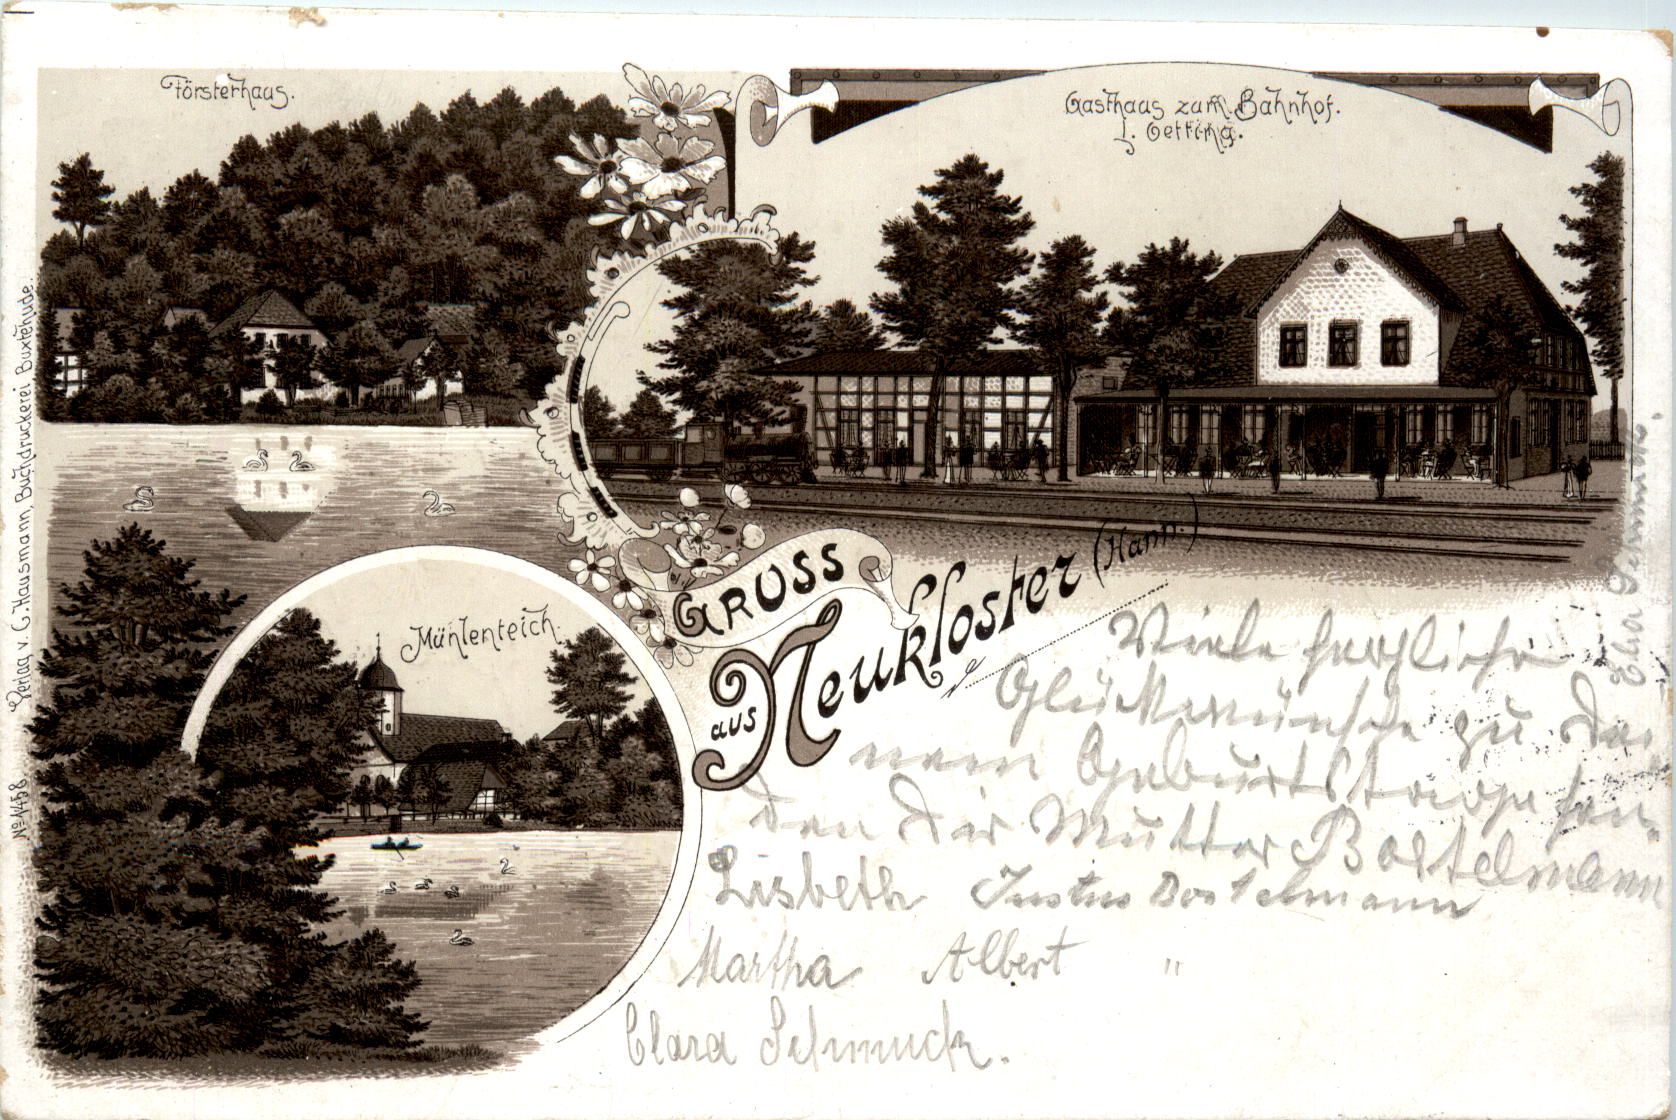 Försterhaus.
Gasthaus zum Bahnhof.
J. Oetting.
Mühlenteich.
Gruss
aus Neukloster (Hann.)
Verlag v. C. Hausmann, Buchdruckerei Buxtehude.
No 1458
Viele herzliche
Glückwünsche zu Dei
nem Geburtstage sen
den Dir Mutter Bostelmann
Lisbeth Justus Bostelmann
Martha Albert "
Clara Schmuck.
Schmuck.